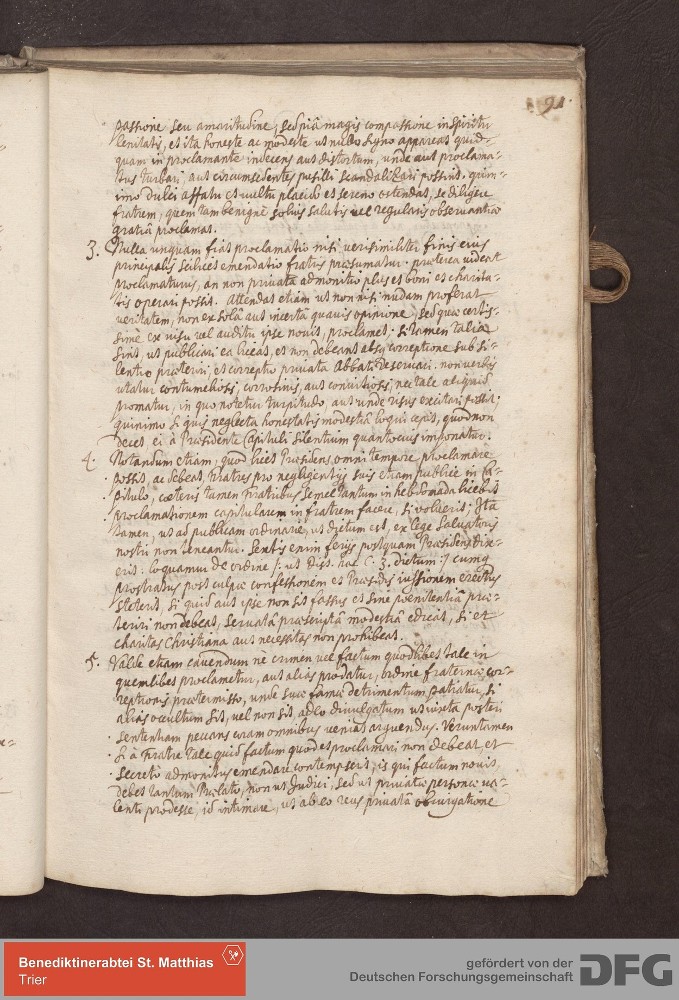 91.
passione seu amaritudine, sed piâ magis compassione in spiritu
lenitatis, et ita honeste ac modeste ut nullo signo appareat quid-
quam in proclamante indecens aut distortum, unde aut proclama-
tus turbari, aut circumsedentes pusilli scandalizari possint. quin-
imo dulci affatu et vultu placido et sereno ostendat, se diligere
fratrem, quem tam benignè solius salutis vel regularis observantiæ
gratiâ proclamat.
3. Nulla unquam fiat proclamatio nisi verisimiliter finis eius
principalis scilicet emendatio fratris præsumatur. præterea videat
proclamaturus, an non privata admonitio plus et boni et charita-
tis operari possit. Attendat etiam ut non nisi nudam proferat
veritatem, non ex solâ aut incerta quavis opinione, sed quæ certis-
simè ex visu vel auditu ipse novit, proclamet. si tamen talia
sint, ut publicari ea liceat, et non debeant absq correptione sub si-
lentio præteriri, et correptio privata Abbati deservari. non verbis
utatur contumeliosis, corrosivis, aut convitiosis, nec tale aliquid
promatur, in quo notetur turpitudo aut unde risus excitari possit;
quinimo si quis neglecta honestatis modestiâ loqui cepit, quod non
decet ei à Præsidente Capituli silentium quantocius imponatur.
4. Notandum etiam, quod licet Præsidens omni tempore proclamare
possit, ac debeat, fratres pro negligentijs suis etiam publicè in Ca-
pitulo, cæteris tamen fratribus semel tantum in hebdomada licebit
proclamationem capitularem in fratrem facere, si voluerit; Ita
tamen, ut ad publicam ordinariè, ut dictum est, ex lege Salvatoris
nostri non teneantur. Sextis enim ferijs postquam Præsidens dixe-
rit: loquamur de ordine /: ut Dist. hac C. 3. dictum :/ cumq
prostratus post culpæ confessionem et Præsidis iussionem erectus
steterit, si quid aut ipse non sit fassus et sine pœnitentiâ præ-
teriri non debeat, servatâ præscriptâ modestiâ edicat, si et
charitas Christiana aut necessitas non prohibeat.
5. Valde etiam cavendum nè crimen vel factum quodlibet tale in
quemlibet proclametur, aut alias prodatur, ordine fraternæ cor-
reptionis prætermisso, unde suæ famæ detrimentum patiatur, si
alias occultum sit, vel non sit adeo divulgatum ut iuxta posteri
sententiam peccans coram omnibus veniat arguendus. Veruntamen
si à fratre tale quid factum quod et proclamari non debeat, et
secretò admonitus emendare contempserit, is qui factum novit,
debet tantum Prælato, non ut Judici, sed ut privatæ personæ va-
lenti prodesse, id intimare, ut ab eo reus privatâ obiurgatione
Benediktinerabtei St. Matthias
Trier
gefördert von der
Deutschen Forschungsgemeinschaft
DFG